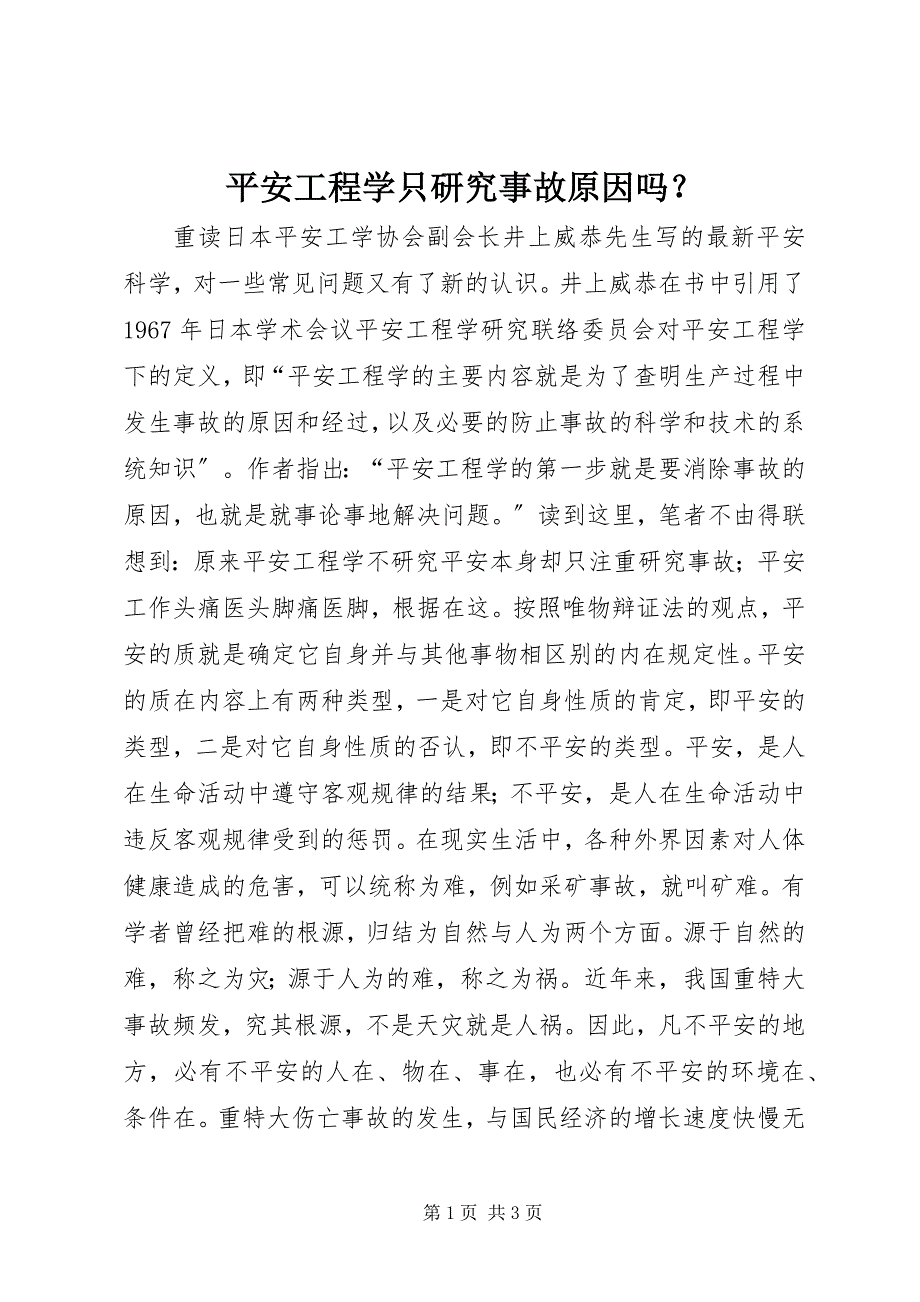 平安工程学只研究事故原因吗？
重读日本平安工学协会副会长井上威恭先生写的最新平安
科学，对一些常见问题又有了新的认识。井上威恭在书中引用了
1967 年日本学术会议平安工程学研究联络委员会对平安工程学
下的定义，即“平安工程学的主要内容就是为了查明生产过程中
发生事故的原因和经过，以及必要的防止事故的科学和技术的系
统知识〞。作者指出：“平安工程学的第一步就是要消除事故的
原因，也就是就事论事地解决问题。〞读到这里，笔者不由得联
想到：原来平安工程学不研究平安本身却只注重研究事故；平安
工作头痛医头脚痛医脚，根据在这。按照唯物辩证法的观点，平
安的质就是确定它自身并与其他事物相区别的内在规定性。平安
的质在内容上有两种类型，一是对它自身性质的肯定，即平安的
类型，二是对它自身性质的否认，即不平安的类型。平安，是人
在生命活动中遵守客观规律的结果；不平安，是人在生命活动中
违反客观规律受到的惩罚。在现实生活中，各种外界因素对人体
健康造成的危害，可以统称为难，例如采矿事故，就叫矿难。有
学者曾经把难的根源，归结为自然与人为两个方面。源于自然的
难，称之为灾；源于人为的难，称之为祸。近年来，我国重特大
事故频发，究其根源，不是天灾就是人祸。因此，凡不平安的地
方，必有不平安的人在、物在、事在，也必有不平安的环境在、
条件在。重特大伤亡事故的发生，与国民经济的增长速度快慢无
第 1 页 共 3 页